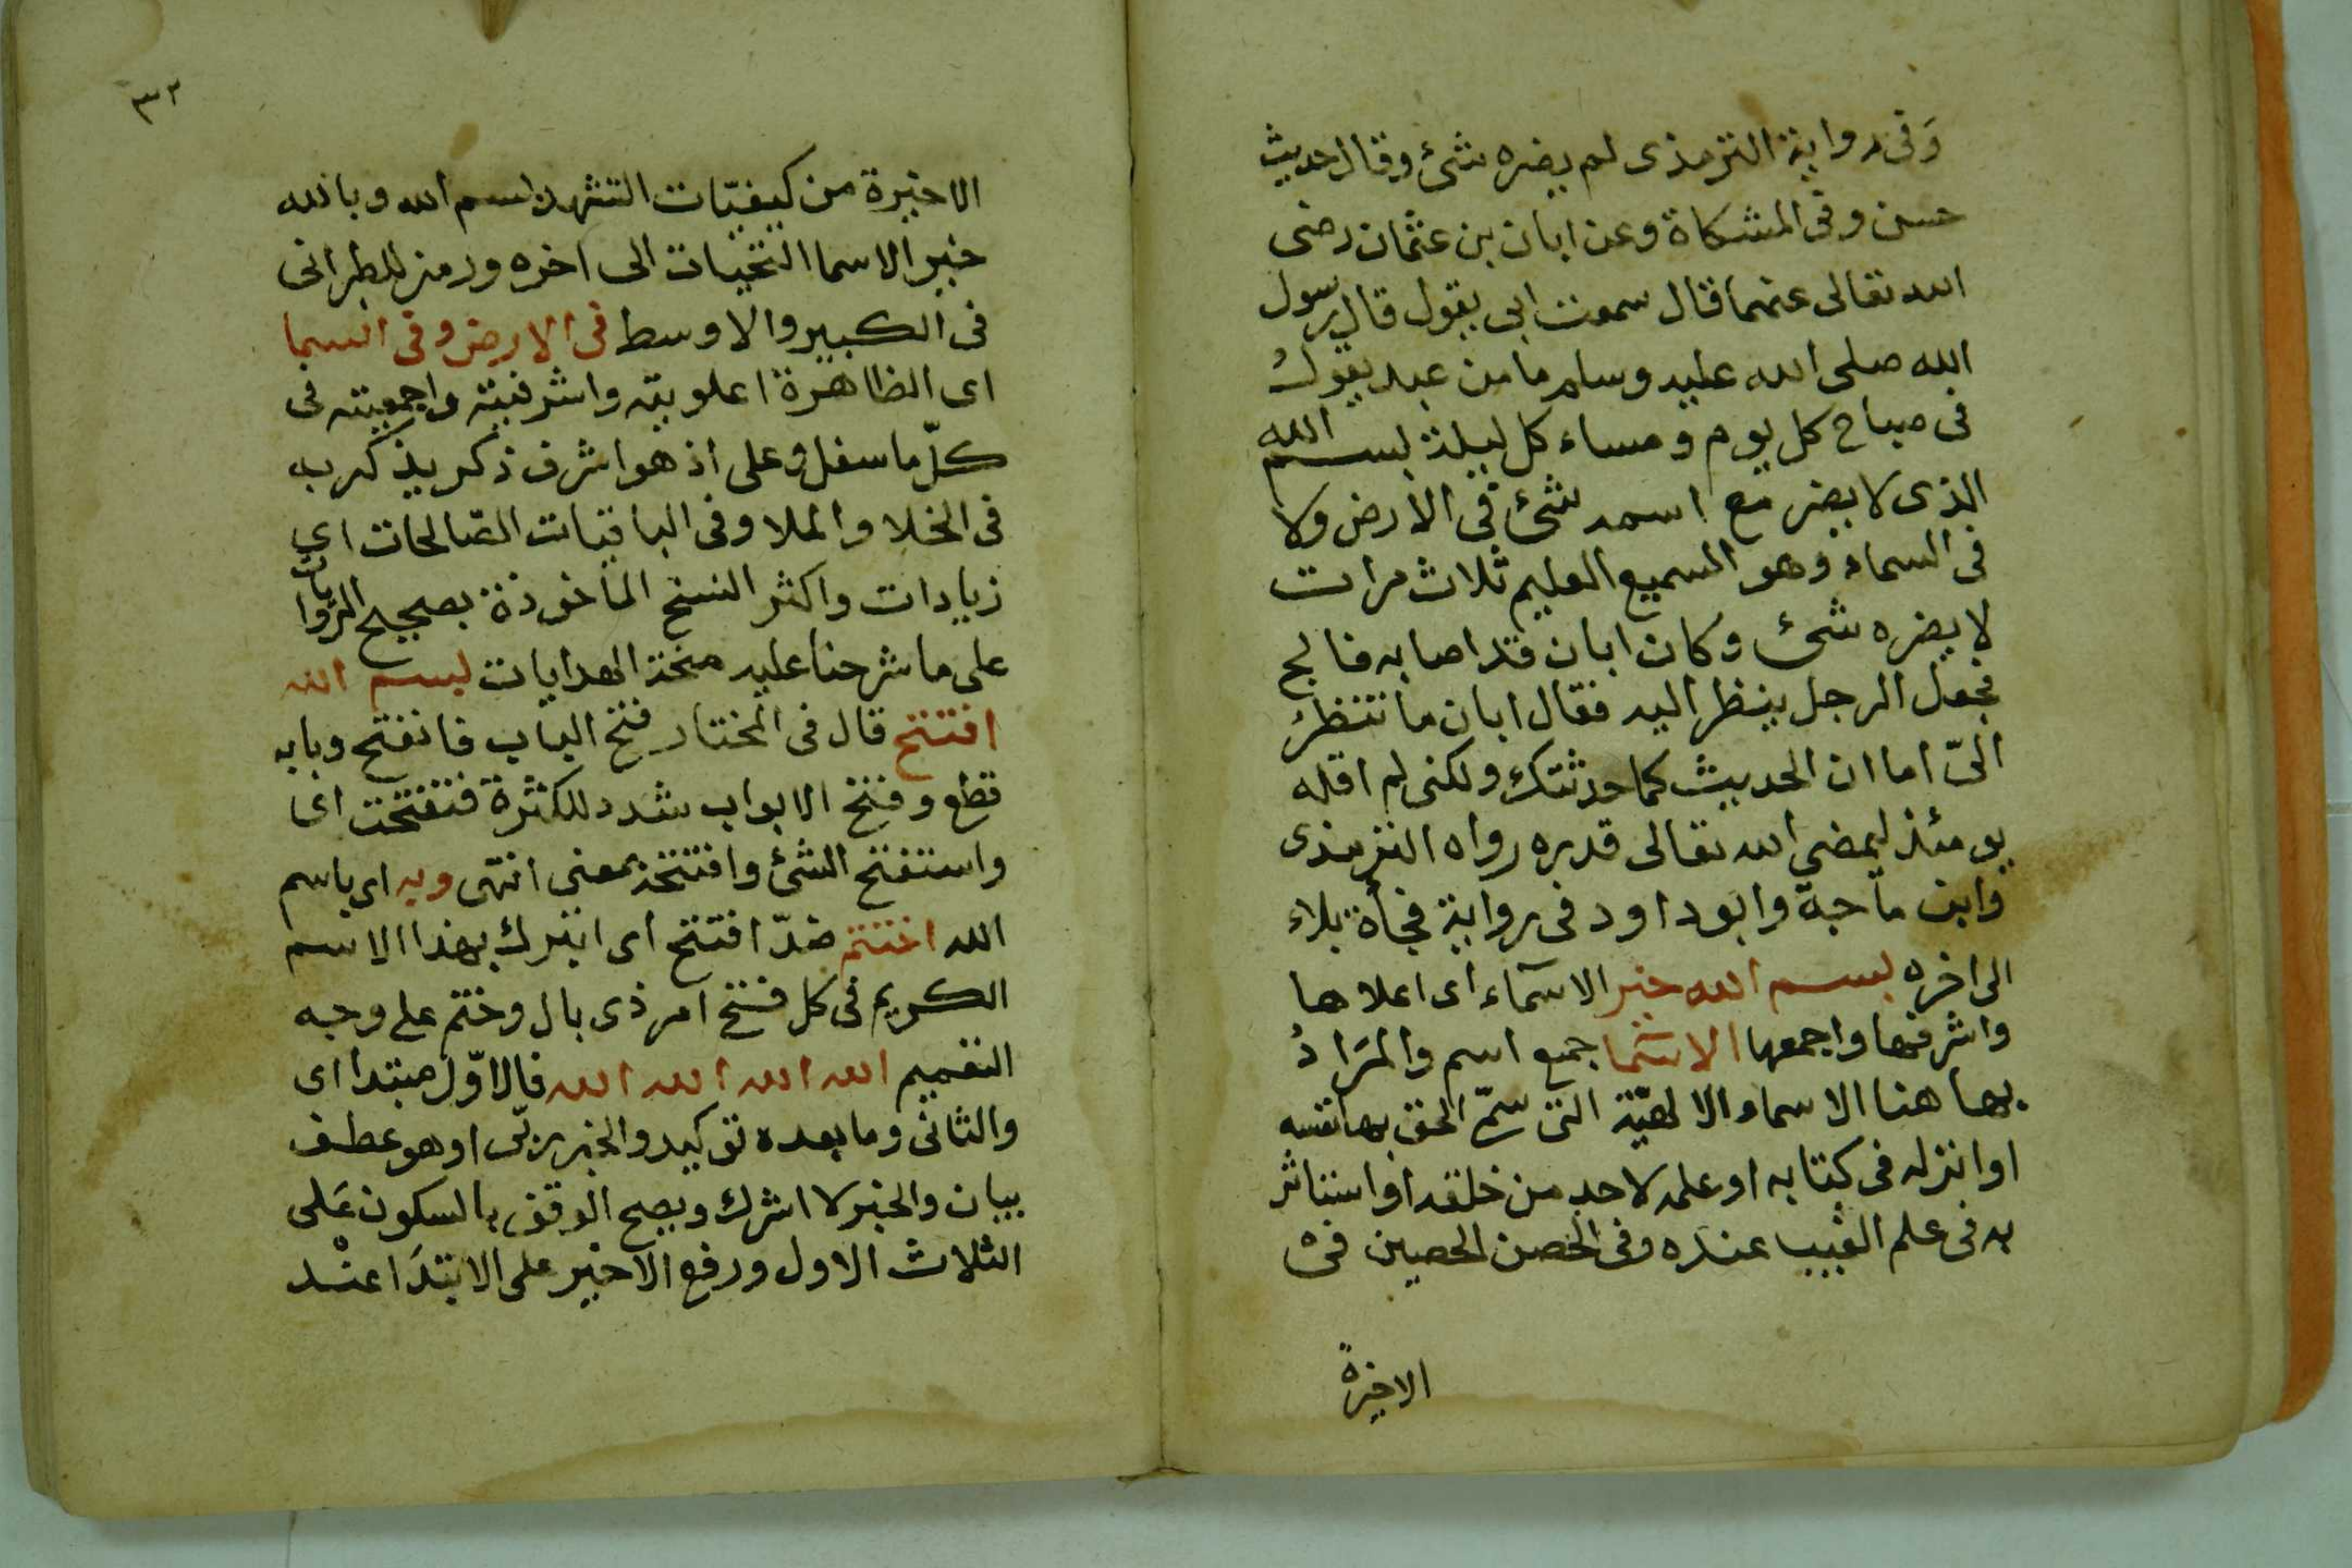 وفى رواية الترمذى لم يضره شئ وقال حديث
حسن وفى المشكاة وعن ابان بن عثمان رضى
الله تعالى عنهما قال سمعت ابى يقول قال رسول
الله صلى الله عليه وسلم ما من عبد يقول
فى صباح كل يوم ومساء كل ليلة بسم الله
الذى لا يضر مع اسمه شئ فى الارض ولا
فى السماء وهو السميع العليم ثلاث مرات
لا يضره شئ وكان ابان قد اصابه فالج
فجعل الرجل ينظر اليه فقال ابان ما تنتظر
الىّ اما ان الحديث كما حدثتك ولكنى لم اقله
يومئذ ليمضى الله تعالى قدره رواه الترمذى
وابن ماجة وابو داود فى رواية فجأة بلاء
الى اخره بسم الله خير الاسماء اى اعلاها
واشرفها واجمعها الاسما جمع اسم والمراد
بها هنا الاسماء الالهيّة التى سمّى الحق بها نفسه
او انزله فى كتابه او علمه لاحد من خلقه او استاثر
به فى علم الغيب عنده وفى الحصن الحصين فى
الاخيرة
٣٢
الاخيرة من كيفيّات التشهد بسم الله وبالله
خير الاسما التحيات الى اخره ورمز للطبرانى
فى الكبير والاوسط فى الارض وفى السما
اى الظاهرة اعلويته واشرفيته واجمعيته فى
كلّ ما سفل وعلى اذ هو اشرف ذكر يذكر به
فى الخلا والملا وفى الباقيات الصّالحات اى
زيادات واكثر النسخ المأخوذة بصحيح الروايات
على ما شرحنا عليه منحة الهدايات بسم الله
افتتح قال فى المختار فتح الباب فانفتح وبابه
قطع وفتح الابواب شدد للكثرة فتفتحت اى
واستفتح الشئ وافتتحه بمعنى انتهى وبه اى باسم
الله اختتم ضدّ افتتح اى اتبرك بهذا الاسم
الكريم فى كل فتح امر ذى بال وختم على وجه
التعميم الله الله الله الله فالاوّل مبتدا اى
والثانى وما بعده توكيد والخبر ربّى او هو عطف
بيان والخبر لا اشرك ويصح الوقف بالسكون على
الثلاث الاول ورفع الاخير على الابتدا عند